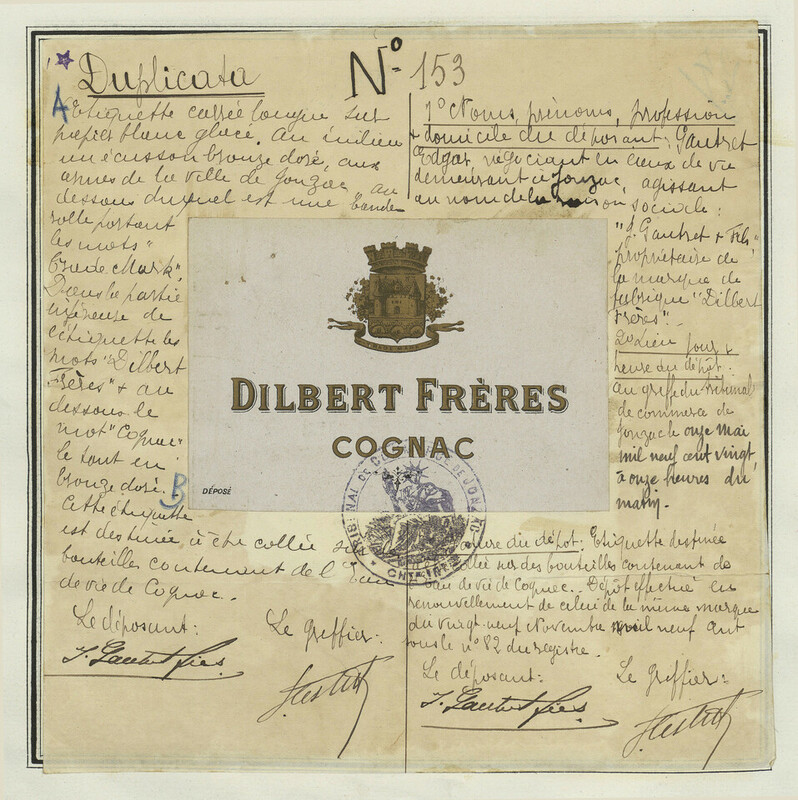 Duplicata
N° 153
A
Etiquette carrée longue sur
papier blanc glacé. Au milieu
un écusson bronze doré, aux
armes de la ville de Jonzac, au
dessous duquel est une bande-
rolle portant
les mots "
Trade Mark".
Dans la partie
inférieure de
l'étiquette les
mots "Dilbert
Frères" & au
dessous le
mot "Cognac"
le tout en
bronze doré.
B
Cette étiquette
est destinée à être collée sur
bouteilles contenant de l'Eau
de vie de Cognac.
Le déposant:
Le Greffier:
J. Gautret Fils
1° Noms, prénoms, profession
& domicile du déposant: Gautret
Edgar, négociant en eaux de vie
demeurant à Jonzac, agissant
au nom de la raison sociale:
"J. Gautret & Fils"
propriétaire de
la marque de
fabrique "Dilbert
Frères".
2° Lieu jour &
heure du dépôt.
Au greffe du tribunal
de commerce de
Jonzac le onze mai
mil neuf cent vingt,
à onze heures du
matin.
TRADE MARK
DILBERT FRÈRES
COGNAC
DÉPOSÉ
TRIBUNAL DE COMMERCE DE JONZAC
du dépôt: Etiquette destinée
collée sur des bouteilles contenant de
eau de vie de Cognac. Dépôt effectué en
renouvellement de celui de la même marque
du vingt-neuf Novembre mil neuf cent
sous le n° 82 du registre.
Le déposant:
Le Greffier:
J. Gautret fils